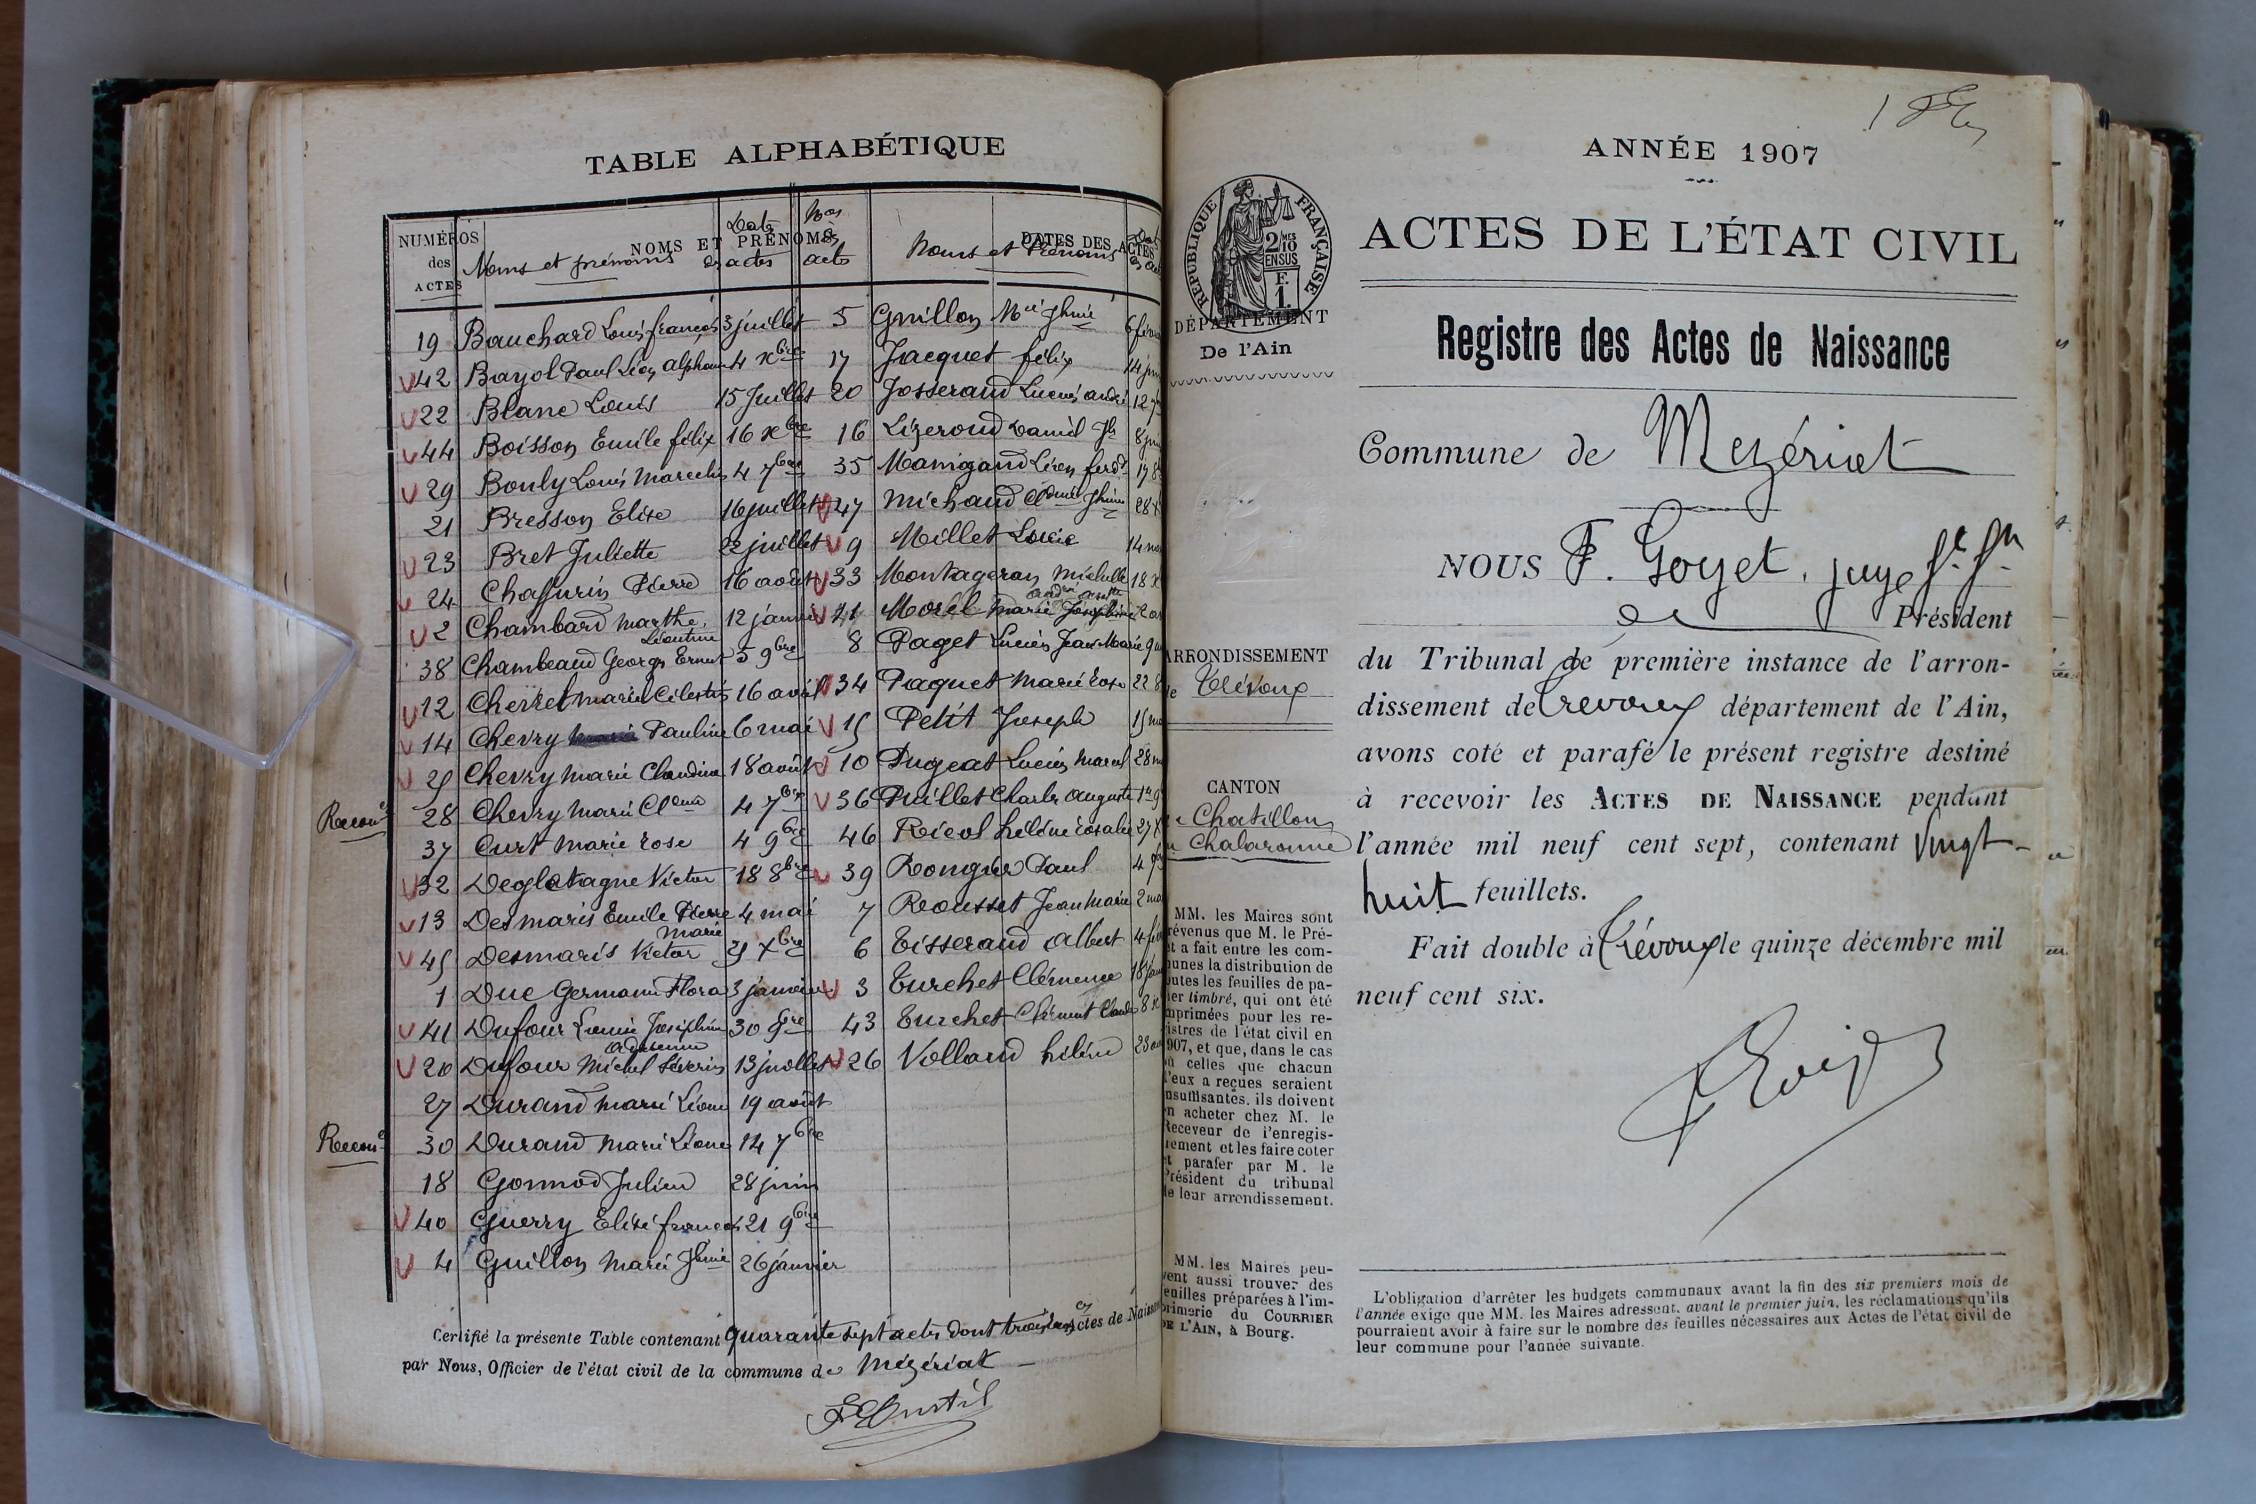 TABLE ALPHABÉTIQUE
NUMÉROS des ACTES
NOMS ET PRÉNOMS
DATES DES ACTES
Noms et prénoms
Date des actes
Nos des actes
Noms et Prénoms
19 Bauchard Louis françois 3 juillet
42 Bayol Paul Léon Alphonse 4 xbre
22 Blanc Louis 15 Juillet
44 Boisson Emile félix 16 xbre
29 Bouly Louis Marcelin 4 7bre
21 Bresson Elise 16 juillet
23 Bret Juliette 22 juillet
24 Chaffurin Pierre 16 août
2 Chambard Marthe Léontine 12 janvi
38 Chambeaud Georges Ernest 5 9bre
12 Cherel Marie Célestin 16 avril
14 Chevry Pauline 6 mai
25 Chevry Marie Claudine 18 août
Reconce 28 Chevry Marie Cldine 4 7bre
37 Curt Marie Rose 4 9bre
32 Deglatagne Victor 18 8bre
13 Desmaris Emile Pierre 4 mai
45 Desmaris Victor Marie 21 xbre
1 Duc Germaine Flora 3 janvier
41 Dufour Josephine 30 9bre
20 Dufour Michel Séverin 13 juillet
27 Durand Marie Léonie 19 août
Reconce 30 Durand Marie Léonie 14 7bre
18 Gonnod Julien 28 juin
40 Guerry Elise françois 21 9bre
4 Guillon Marie Jhine 26 janvier
5 Guillon Mie Jhine 6 févr
17 Jacquet félix 14 jui
20 Josserand Lucien André 12 7
16 Lizeroud Daniel Jh 8 jui
35 Manigand Léon ferdd 17 8
47 Michaud Cldine Jhine 28 x
9 Millet Lucie 14 ma
33 Montageron Michelle 18
11 Morel Marie Joséphine 2 av
8 Paget Lucien Jean Marie 9
34 Paquet Marie Rose 22 8
15 Petit Joseph 15 ma
10 Pugeat Lucien Marcel 28 m
36 Puillet Charles Auguste 1er 9
46 Riciol Hélène Rosalie 27 x
39 Rongier Paul 4 9b
7 Rousset Jean Marie 2 ma
6 Tisserand Albert 4 fév
3 Turchet Clémence 18 jan
43 Turchet Clément Claude 8 x
26 Volland Hélène 23 ao
Certifié la présente Table contenant quarante sept actes dont trois Actes de Naissan
par Nous, Officier de l'état civil de la commune de Mézériat
ANNÉE 1907
RÉPUBLIQUE FRANÇAISE
2/10 MES EN SUS
F. 1.
ACTES DE L'ÉTAT CIVIL
DÉPARTEMENT
De l'Ain
Registre des Actes de Naissance
Commune de Mezériat
NOUS F. Goyet, juge
Président
ARRONDISSEMENT
de Trévoux
du Tribunal de première instance de l'arron-
dissement de Trevoux département de l'Ain,
avons coté et parafé le présent registre destiné
à recevoir les ACTES DE NAISSANCE pendant
l'année mil neuf cent sept, contenant Vingt-
huit feuillets.
CANTON
Chatillon
Chalaronne
Fait double à Trévoux le quinze décembre mil
neuf cent six.
MM. les Maires sont
révenus que M. le Pré-
t a fait entre les com-
munes la distribution de
outes les feuilles de pa-
ier timbré, qui ont été
mprimées pour les re-
istres de l'état civil en
907, et que, dans le cas
ù celles que chacun
'eux a reçues seraient
nsuffisantes, ils doivent
n acheter chez M. le
Receveur de l'enregis-
ement et les faire coter
t parafer par M. le
Président du tribunal
de leur arrondissement.
MM. les Maires peu-
vent aussi trouver des
euilles préparées à l'im-
primerie du COURRIER
DE L'AIN, à Bourg.
L'obligation d'arrêter les budgets communaux avant la fin des six premiers mois de
l'année exige que MM. les Maires adressent, avant le premier juin, les réclamations qu'ils
pourraient avoir à faire sur le nombre des feuilles nécessaires aux Actes de l'état civil de
leur commune pour l'année suivante.